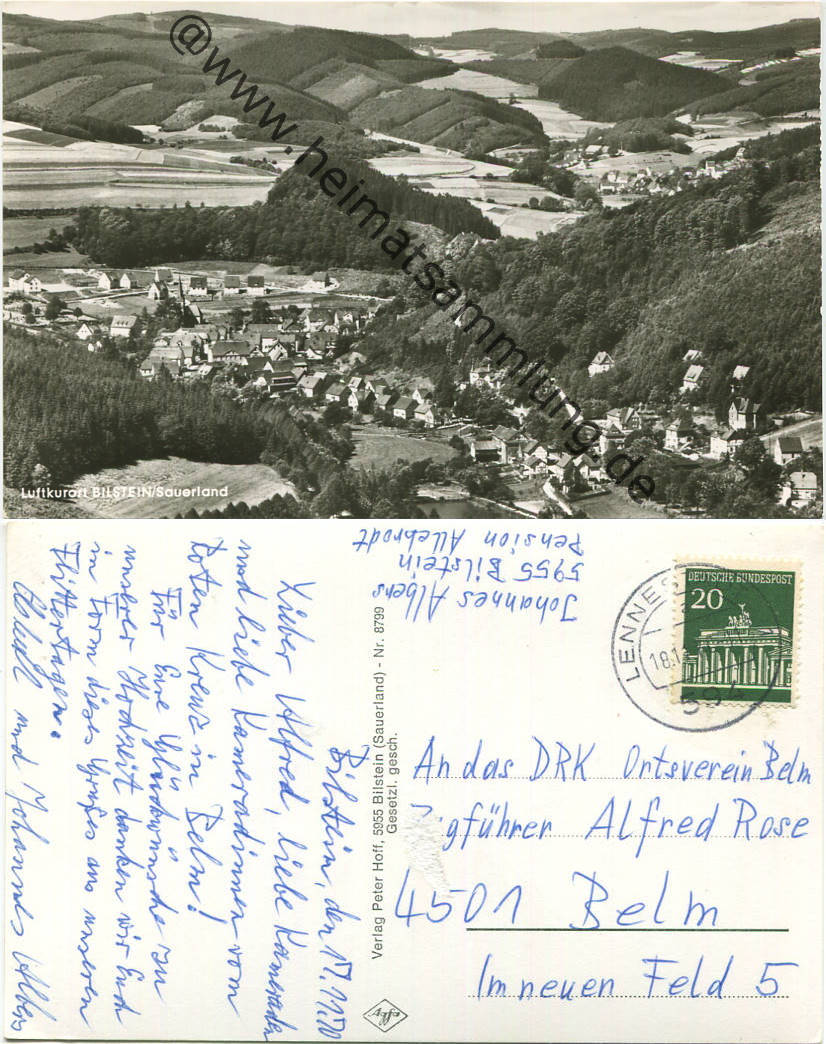 @www.heimatsammlung.de
Luftkurort BILSTEIN/Sauerland
Johannes Albers
5955 Bilstein
Pension Allebrodt
Bilstein, den 17.11.70
Lieber Alfred, liebe Kameraden
und liebe Kameradinnen vom
Roten Kreuz in Belm!
Für Eure Glückwünsche zu
unserer Hochzeit danken wir Euch
in Form dieses Grußes aus unseren
Flittertagen.
und Johannes Albers
Verlag Peter Hoff, 5955 Bilstein (Sauerland) - Nr. 8799
Gesetzl. gesch.
Agfa
DEUTSCHE BUNDESPOST
20
LENNES
18.1
594
An das DRK Ortsverein Belm
Zugführer Alfred Rose
4501 Belm
Im neuen Feld 5